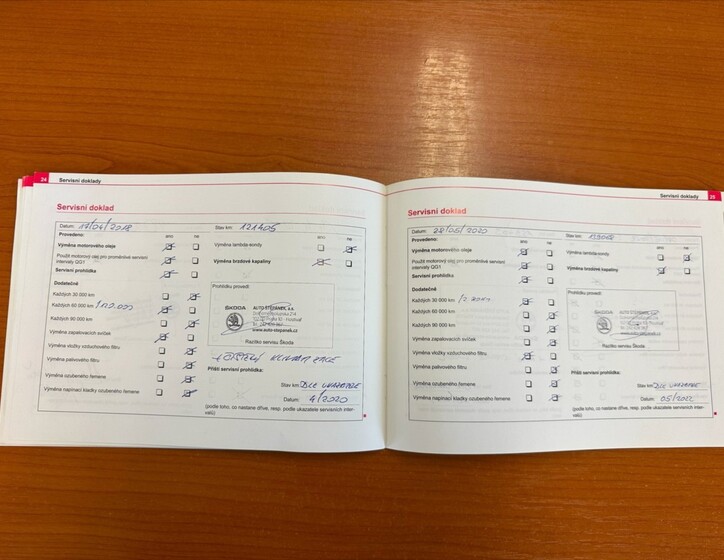 24 Servisní doklady
Servisní doklad
Datum: 17/04/2018 Stav km: 121405
Provedeno: ano ne ano ne
Výměna motorového oleje Výměna lambda-sondy
Použit motorový olej pro proměnlivé servisní intervaly QG1 Výměna brzdové kapaliny
Servisní prohlídka
Dodatečně
Každých 30 000 km Prohlídku provedl:
Každých 60 000 km /120.000
Každých 90 000 km
ŠKODA AUTO ŠTĚPÁNEK, a.s.
www.auto-stepanek.cz
Razítko servisu Škoda
Výměna zapalovacích svíček
Výměna vložky vzduchového filtru
Výměna palivového filtru
Příští servisní prohlídka:
Výměna ozubeného řemene
Stav km: DLE UKAZATELE
Výměna napínací kladky ozubeného řemene
Datum: 4/2020
(podle toho, co nastane dříve, resp. podle ukazatele servisních intervalů)
Servisní doklady 25
Servisní doklad
Datum: 28/05/2020 Stav km:
Provedeno: ano ne ano ne
Výměna motorového oleje Výměna lambda-sondy
Použit motorový olej pro proměnlivé servisní intervaly QG1 Výměna brzdové kapaliny
Servisní prohlídka
Dodatečně
Každých 30 000 km Prohlídku provedl:
Každých 60 000 km
Každých 90 000 km
ŠKODA
Razítko servisu Škoda
Výměna zapalovacích svíček
Výměna vložky vzduchového filtru
Výměna palivového filtru
Příští servisní prohlídka:
Výměna ozubeného řemene
Stav km: DLE UKAZATELE
Výměna napínací kladky ozubeného řemene
Datum: 05/2022
(podle toho, co nastane dříve, resp. podle ukazatele servisních intervalů)